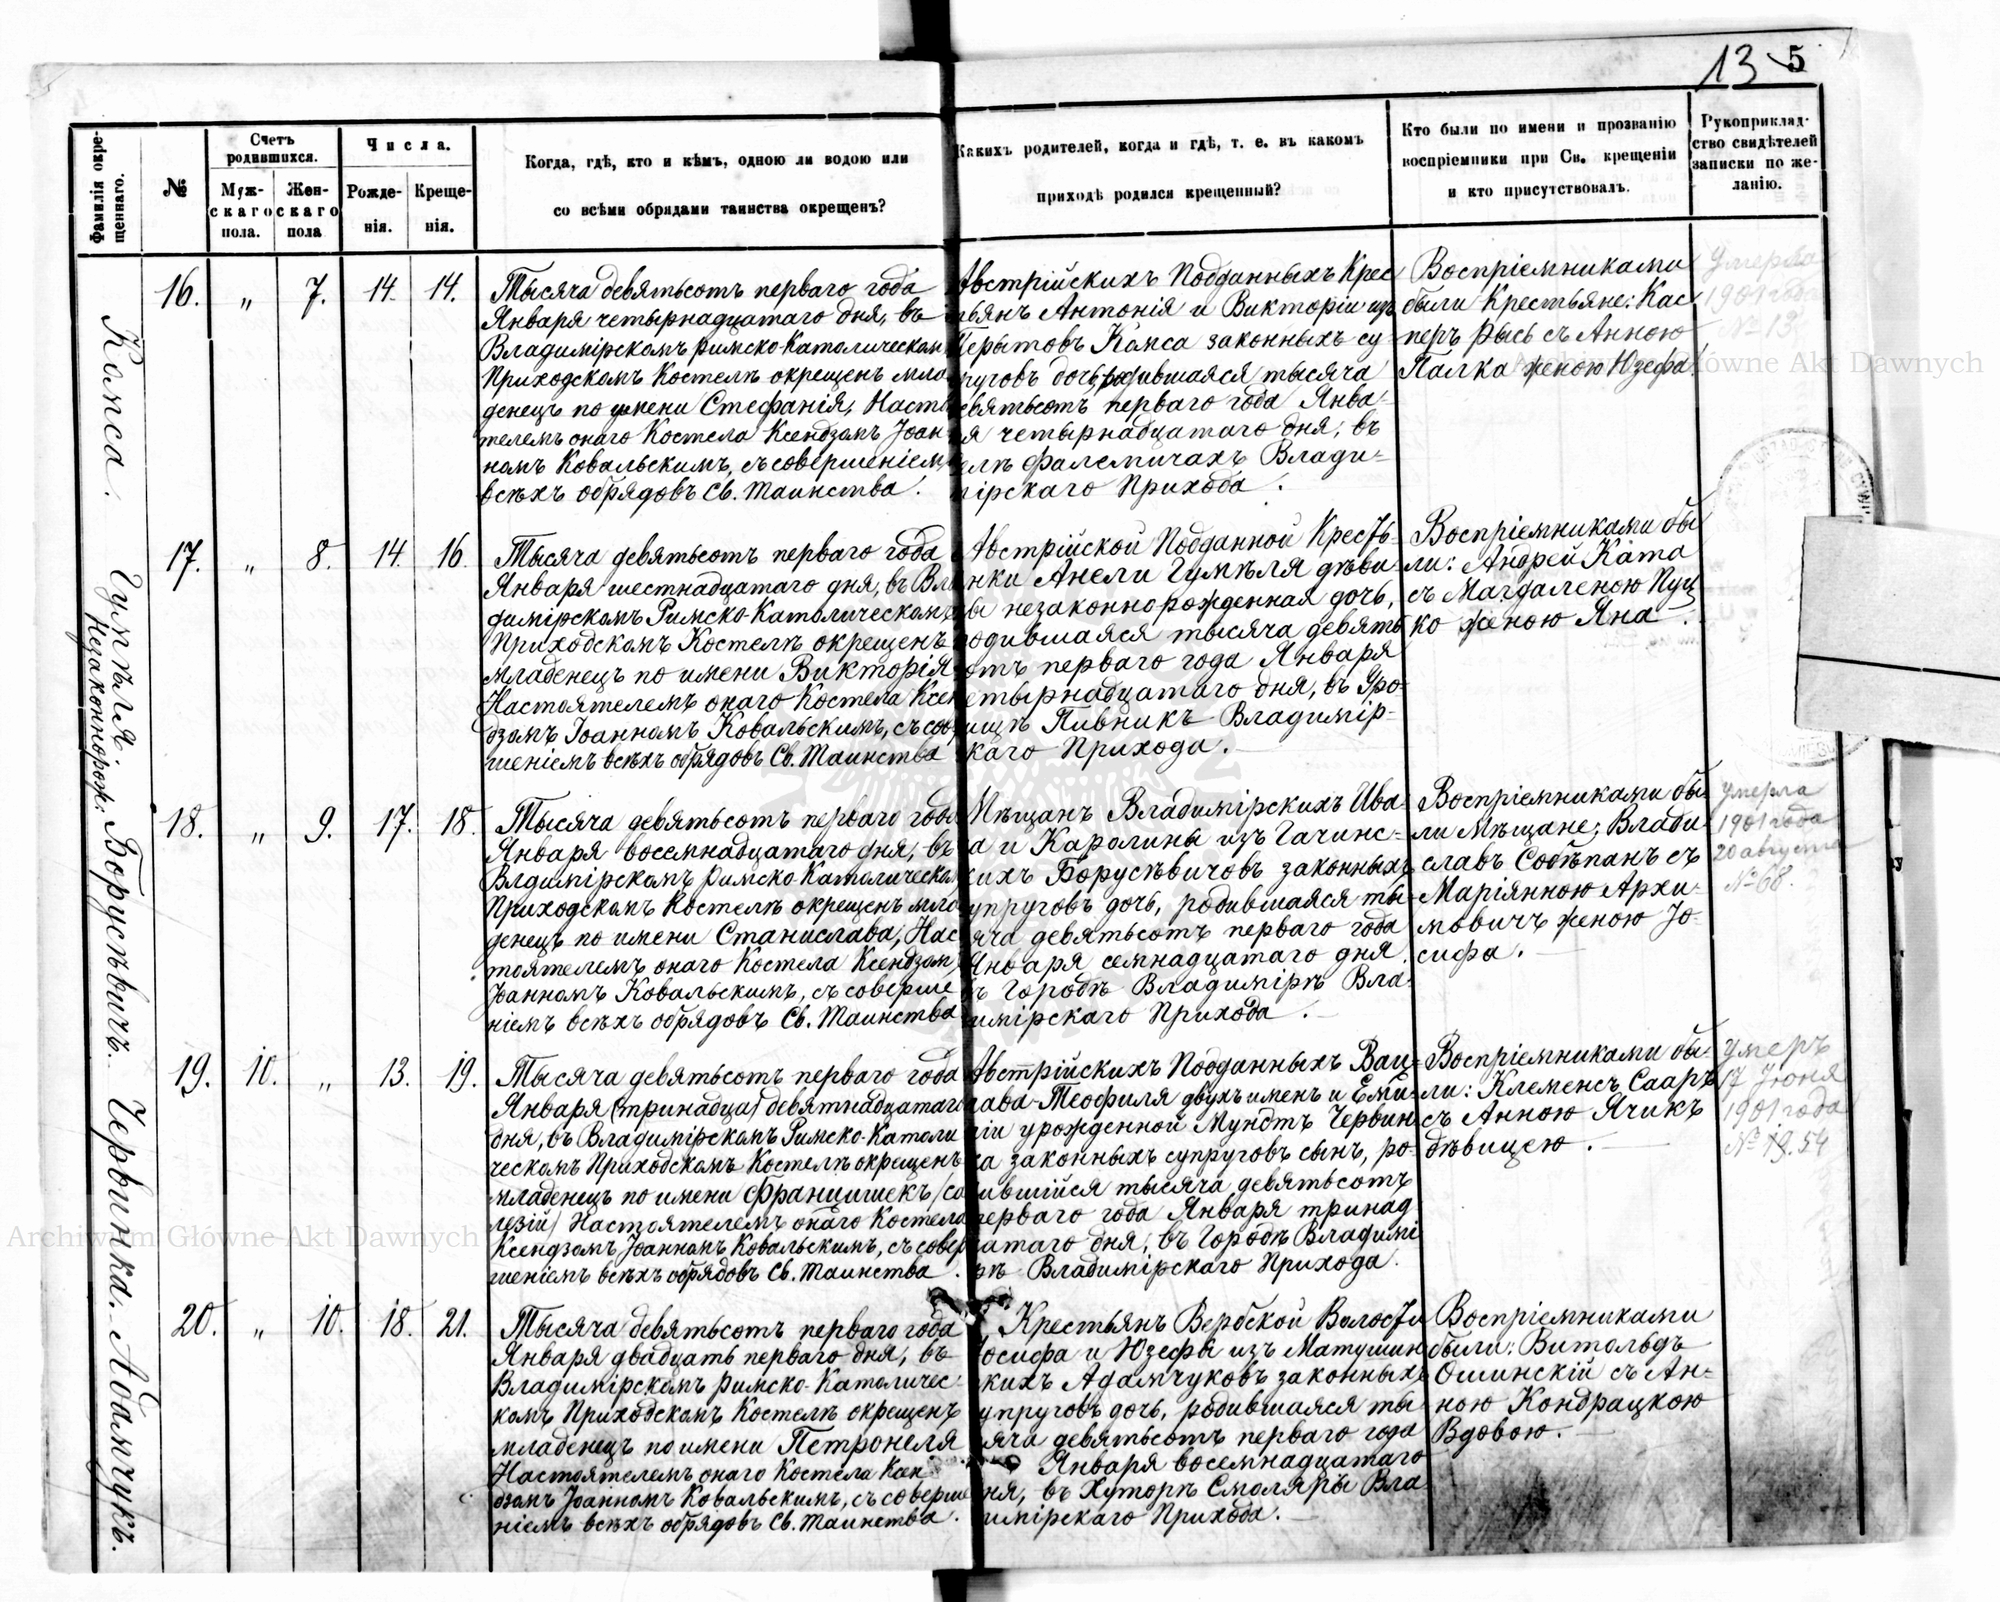 13 5
Фамилія окре-
щеннаго.
№
Счетъ
родившихся.
Муж-
скаго
пола.
Жен-
скаго
пола
Числа.
Рожде-
нія.
Креще-
нія.
Когда, гдѣ, кто и кѣмъ, одною ли водою или
со всѣми обрядами таинства окрещенъ?
Какихъ родителей, когда и гдѣ, т. е. въ какомъ
приходѣ родился крещенный?
Кто были по имени и прозванію
воспріемники при Св. крещеніи
и кто присутствовалъ.
Рукоприклад-
ство свидѣтелей
записки по же-
ланію.
Компса.
16. „ 7. 14. 14.
Тысяча девятьсотъ перваго года
Января четырнадцатаго дня, въ
Владимірскомъ римско-католическом
Приходскомъ Костелѣ окрещенъ мла
денецъ по имени Стефанія, Насто
телемъ онаго Костела Ксендзомъ Іоан
номъ Ковальскимъ, съ совершеніем
всѣхъ обрядовъ Св. Таинства.
Австрійскихъ Подданныхъ Крес
ьянъ Антонія и Викторіи изъ
Перытовъ Компса законныхъ су
руговъ дочь, родившаяся тысяча
евятьсотъ перваго года Янва-
я четырнадцатаго дня, въ
елѣ Фалемичахъ Влади-
мірскаго Прихода.
Воспріемниками
были Крестьяне: Кас
перъ Рысь съ Анною
Палка женою Юзефа.
Умерла
1901 года
№ 13.
Гумѣля.
Незаконнорож:
17. „ 8. 14. 16.
Тысяча девятьсотъ перваго года
Января шестнадцатаго дня, въ Вла
димірскомъ Римско-Католическомъ
Приходскомъ Костелѣ окрещенъ
младенецъ по имени Викторія
Настоятелемъ онаго Костела Ксен
дзомъ Іоанномъ Ковальскимъ, съ сов
шеніемъ всѣхъ обрядовъ Св. Таинства
Австрійской Подданной Кресть-
нки Анели Гумѣля дѣви-
ы незаконнорожденная дочь,
родившаяся тысяча девять
отъ перваго года Января
етырнадцатаго дня, въ Уро-
ищѣ Пивникъ Владимір-
каго Прихода.
Воспріемниками бы
ли: Андрей Ката
съ Магдаленою Пуц
ко женою Яна.
Борусѣвичъ.
18. „ 9. 17. 18.
Тысяча девятьсотъ перваго года
Января восемнадцатаго дня, въ
Влдимірскомъ Римско-Католическом
Приходскомъ Костелѣ окрещенъ мла
денецъ по имени Станислава, Нас
тоятелемъ онаго Костела Ксендзом
Іоанномъ Ковальскимъ, съ соверше
ніемъ всѣхъ обрядовъ Св. Таинства
Мѣщанъ Владимірскихъ Ива-
а и Каролины изъ Гачинс-
кихъ Борусѣвичовъ законныхъ
упруговъ дочь, родившаяся ты-
яча девятьсотъ перваго года
Января семнадцатаго дня,
ъ Городѣ Владимірѣ Вла-
имірскаго Прихода.
Воспріемниками бы-
ли Мѣщане: Влади-
славъ Собѣпанъ съ
Маріянною Архи-
мовичъ женою Іо-
сифа.
Умерла
1901 года
20 августа
№ 68.
Червинка.
19. 10. „ 13. 19.
Тысяча девятьсотъ перваго года
Января (тринадца) девятнадцатаго
дня, въ Владимірскомъ Римско-Католи
ческомъ Приходскомъ Костелѣ окрещенъ
младенецъ по имени Францишекъ (са
лезій) Настоятелемъ онаго Костела
Ксендзомъ Іоанномъ Ковальскимъ, съ совер
шеніемъ всѣхъ обрядовъ Св. Таинства.
Австрійскихъ Подданныхъ Вац-
лава-Теофиля двухъ именъ и Емй-
ліи урожденной Мундтъ Червин
ка законныхъ супруговъ сынъ, ро-
ившійся тысяча девятьсотъ
перваго года Января тринад
цатаго дня, въ Городѣ Владимі
рѣ Владимірскаго Прихода.
Воспріемниками бы-
ли: Клеменсъ Сааръ
съ Анною Ячикъ
дѣвицею.
Умеръ
17 Іюня
1901 года
№ 54
Адамчукъ.
20. „ 10. 18. 21.
Тысяча девятьсотъ перваго года
Января двадцать перваго дня, въ
Владимірскомъ Римско-Католичес-
комъ Приходскомъ Костелѣ окрещенъ
младенецъ по имени Петронеля
Настоятелемъ онаго Костела Ксен
дзомъ Іоанномъ Ковальскимъ, съ соверше
ніемъ всѣхъ обрядовъ Св. Таинства.
Крестьянъ Вербской Волости
Іосифа и Юзефы изъ Матушин
кихъ Адамчуковъ законныхъ
упруговъ дочь, родившаяся ты
яча девятьсотъ перваго года
Января восемнадцатаго
ня, въ Хуторѣ Смоляры Вла-
имірскаго Прихода.
Воспріемниками
были: Витольдъ
Ошинскій съ Ан-
ною Кондрацкою
Вдовою.
Archiwum Główne Akt Dawnych
Archiwum Główne Akt Dawnych